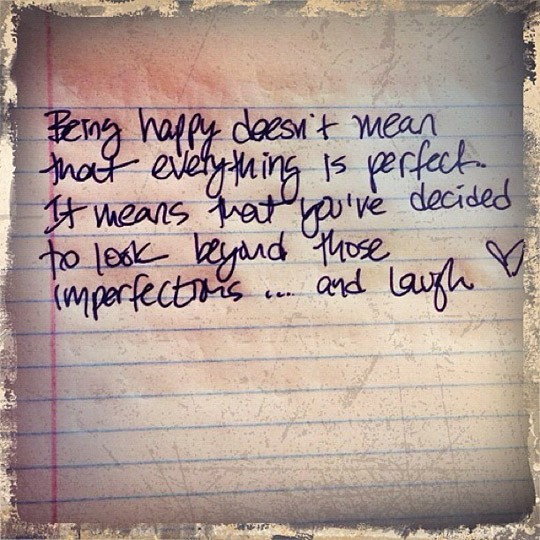 Being happy doesn't mean
that everything is perfect.
It means that you've decided
to look beyond those
imperfections ... and laugh ♡